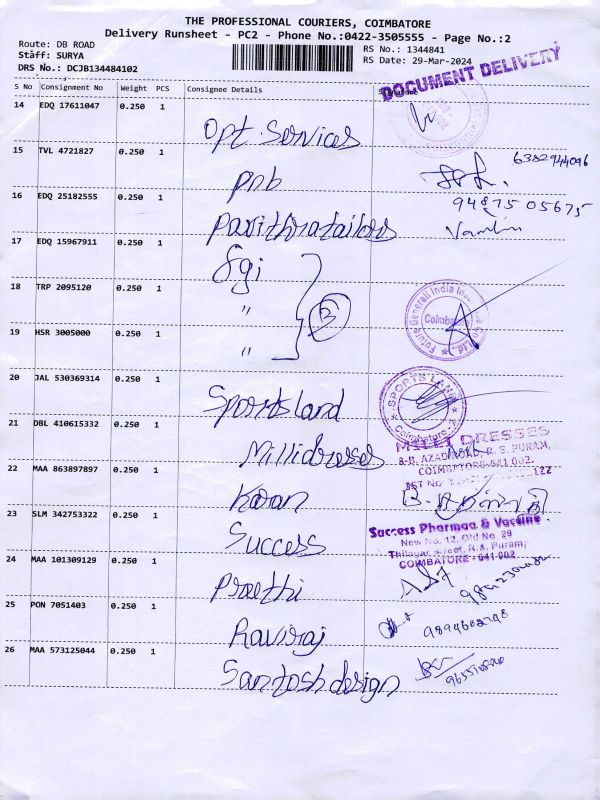 THE PROFESSIONAL COURIERS, COIMBATORE
Delivery Runsheet - PC2 - Phone No.:0422-3505555 - Page No.:2
Route: DB ROAD
RS No.: 1344841
Staff: SURYA
RS Date: 29-Mar-2024
DRS No.: DCJB134484102
DOCUMENT DELIVERY
S No Consignment No Weight PCS Consignee Details
14 EDQ 17611047 0.250 1 Opt. Services
15 TVL 4721827 0.250 1 pnb 6382944096
16 EDQ 25182555 0.250 1 pavithratailors 94875 05675
17 EDQ 15967911 0.250 1 Sgi
18 TRP 2095120 0.250 1 "
3
Future Generali India Insurance Co. Ltd.
Coimbatore
19 HSR 3005000 0.250 1 "
20 JAL 530369314 0.250 1 Sportsland
SPORTS LAND
Coimbatore-2
21 DBL 410615332 0.250 1 Millidresses
MILLI DRESSES
R. S. PURAM,
COIMBATORE-641 002.
22 MAA 863897897 0.250 1 Karan
23 SLM 342753322 0.250 1 Success
Success Pharmaa & Vaccine
New No. 12, Old No. 29
Thilagar street, R.S. Puram,
COIMBATORE - 641 002
24 MAA 101309129 0.250 1 Preethi
25 PON 7051403 0.250 1 Raviraj
26 MAA 573125044 0.250 1 Santosh design